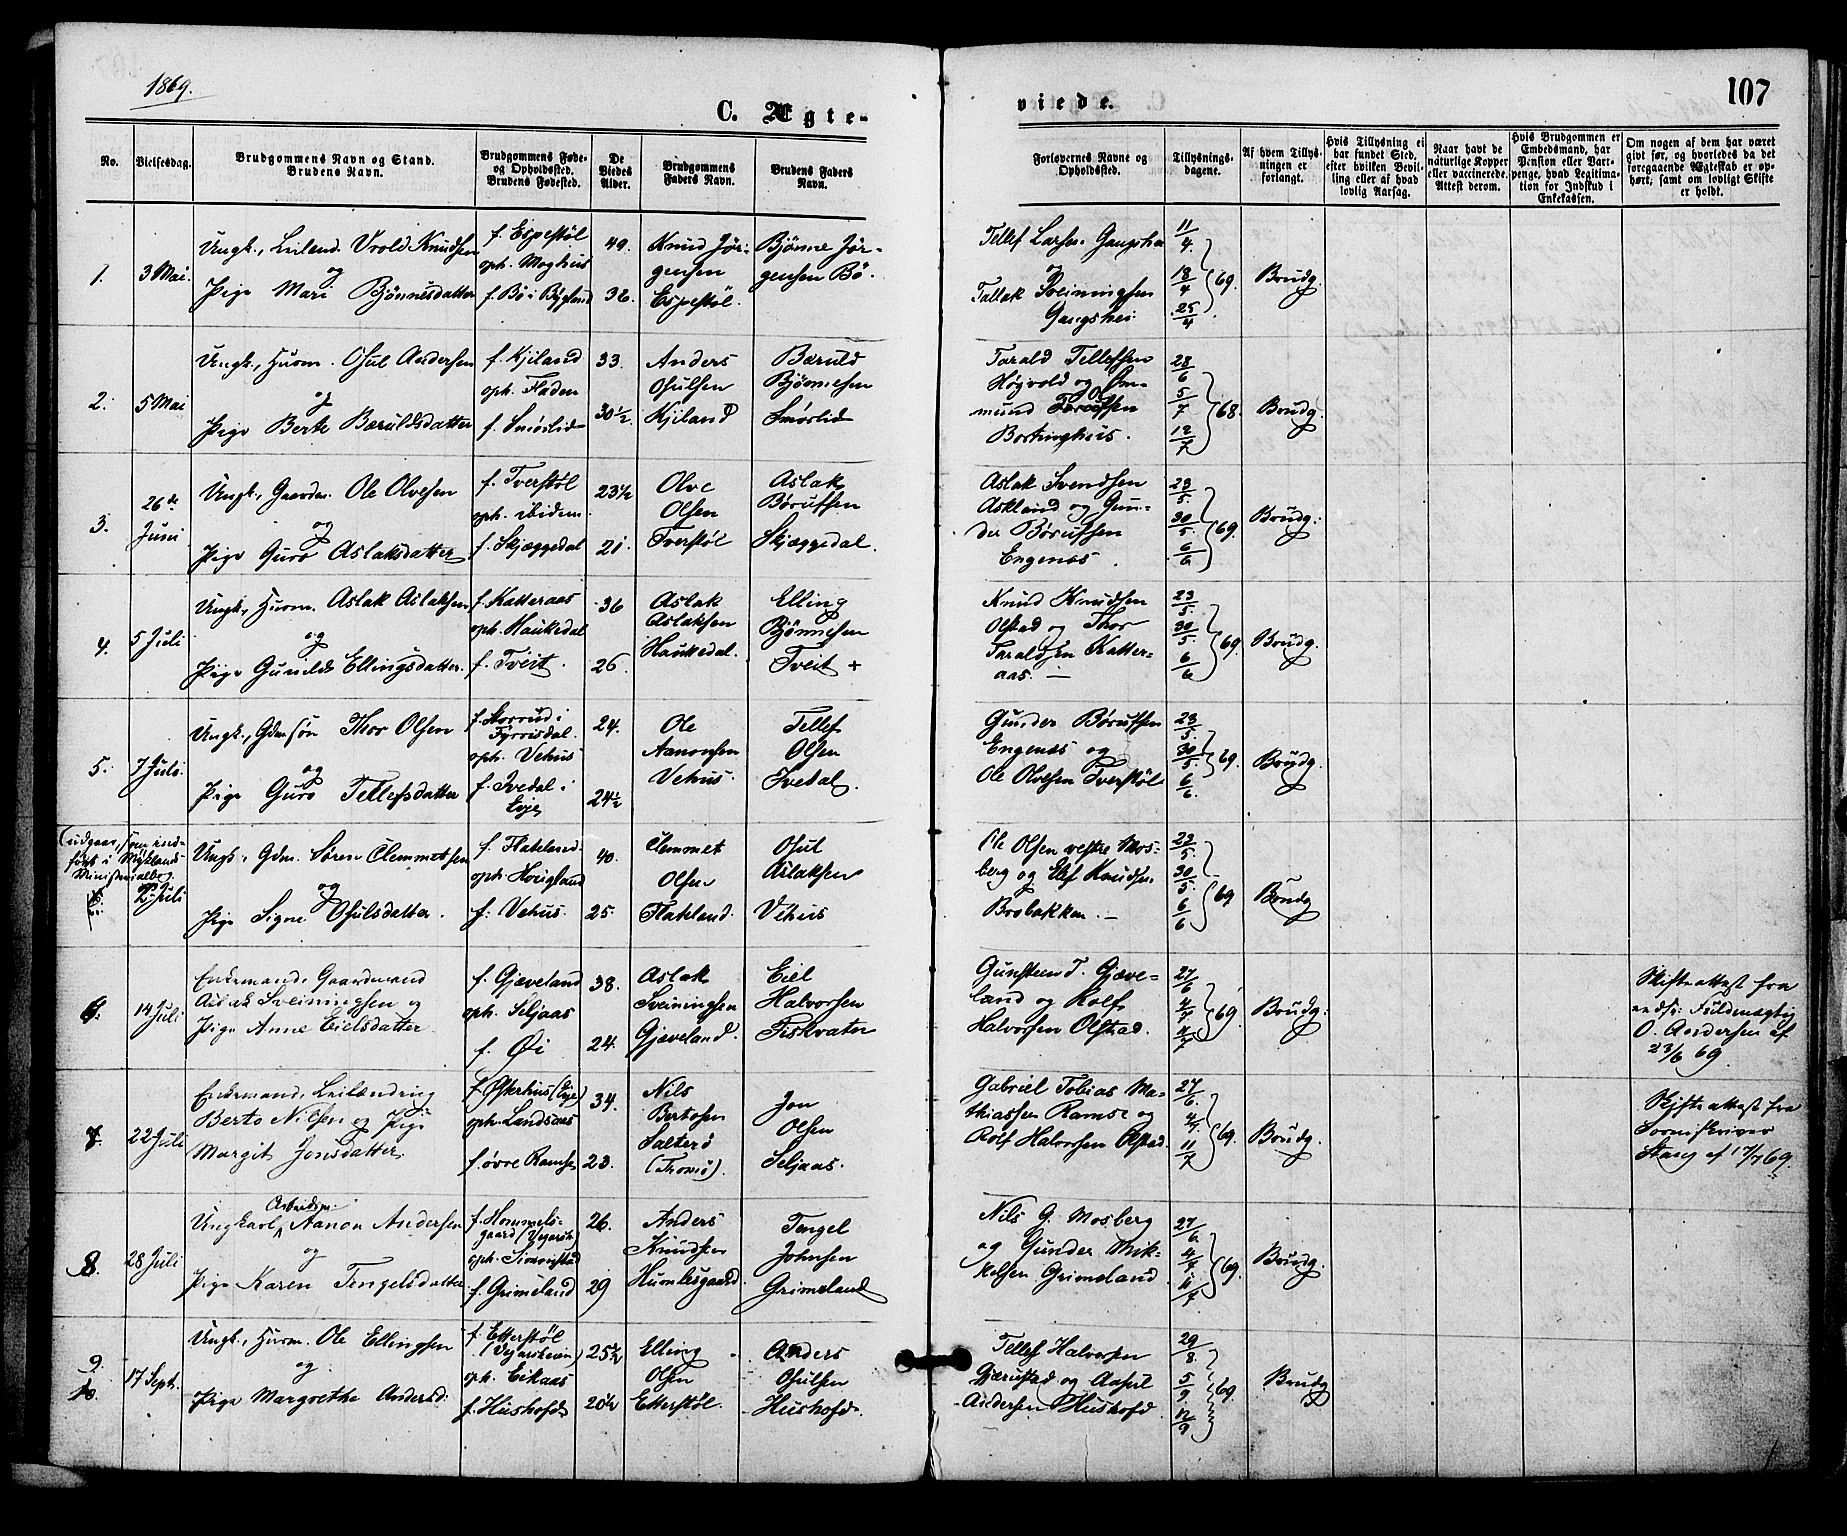 1869.
107
C. Ægte-
viede.
No.
Vielsesdag.
Brudgommens Navn og Stand.
Brudens Navn.
Brudgommens Føde-
og Opholdsted.
Brudens Fødested.
De
Viedes
Alder.
Brudgommens
Faders Navn.
Brudens Faders
Navn.
Forlovernes Navne og
Opholdsted.
Tillysnings-
dagene.
Af hvem Tillys-
ningen er
forlangt.
Hvis Tillysning ei
har fundet Sted,
efter hvilken Bevil-
ling eller af hvad
lovlig Aarsag.
Naar havt de
naturlige Kopper
eller vaccinerede.
Attest derom.
Hvis Brudgommen er
Embedsmand, har
Pension eller Vart-
penge, hvad Legitima-
tion for Indskud i
Enkekassen.
Om nogen af dem har været
givt før, og hvorledes da det
foregaaende Ægteskab er op-
hørt; samt om lovligt Skifte
er holdt.
1.
3 Mai.
Ungk., Leilend. Vrold Knudsen
og
Pige Mari Bjönnesdatter
f. Espestöl
oph. Moghus
f. Bö i Bygland
49.
32.
Knud Jör-
gensen
Espestöl.
Bjönne Jör-
gensen Bö.
Tellef Larsen
og
Tallak Sveiningsen
11/4
18/4
25/4
69.
Brudg.
2.
5 Mai
Ungk., Husm. Osul Andersen
og
Pige Berte Bæruldsdatter
f. Kjiland
oph. Fladen
f. Smörlid
33.
30 1/2.
Anders
Osulsen
Kjiland
Bæruld
Bjönnesen
Smörlid
Tarald Tellefsen
Högvold og Om-
mund
28/6
5/7
12/7
68.
Brudg.
3.
26de
Juni
Ungk., Gaardm. Ole Olvesen
og
Pige Guro Aslaksdatter
f. Tverstöl
oph. ibidem.
f. Skjæggedal
23 1/2
21.
Olve
Olsen
Tverstöl
Aslak
Börufsen
Skjæggedal.
Aslak Svendsen
Askland og Gun-
der Börufsen
Engenes.
23/5.
30/5.
6/6
69.
Brudg.
4.
5 Juli
Ungk., Husm. Aslak Aslaksen
og
Pige Gunild Ellingsdatter.
f. Katteraas
oph. Haukedal
f. Tveit.
36
26.
Aslak
Aslaksen
Haukedal.
Elling
Bjönnesen
Tveit +
Knud Knudsen
Olstad og Thor
Taraldsen Katter-
aas. —
23/5.
30/5.
6/6
69.
Brudg.
5.
7 Juli.
Ungk., Gdmsön Thor Olsen
og
Pige Guro Tellefsdatter
f. Storrud i
Fyrrisdal.
oph. Vehus
f. Ivedal i
Evje
24.
24 1/2
Ole
Aanonsen
Vehus
Tellef
Olsen
Ivedal.
Gunder Börufsen
Engenes og
Ole Olvesen Tverstöl
23/5.
30/5
6/6.
69.
Brudg.
(udgaar, som ind-
fört i Myklands
Ministerialbog
Juli
Ungk., Gdm. Sören Clemmetsen
og
Pige Signe Osulsdatter.
f. Flateland
oph. Heigland
f. Vehus.
40.
25.
Clemmet
Olsen
Flateland.
Osul
Aslaksen
Vehus
Ole Olsen vestre Mos-
berg og Elef Knudsen
Brobakken. —
23/5.
30/5.
6/6
69
Brudg
6.
14 Juli
Enkemand, Gaardmand
Aslak Sveiningsen og
Pige Anne Eielsdatter.
f. Gjæveland
oph. Seljaas
f. Öi
38.
24.
Aslak
Sveiningsen
Gjæveland.
Eiel
Halvorsen
Fiskvatn
Gunsteen T. Gjæve-
land og Rolf
Halvorsen Olstad.
27/6
4/7
69.
Brudg.
Skifteattest fra
Fuldmægtig
O. Andersen af
23/6 69.
7.
22 Juli
Enkemand, Leilænding
Berto Nilsen og Pige
Margit Jonsdatter.
f. Österhus (Evje)
oph. Landsaas
f. övre Ramse
34.
23.
Nils
Bertosen
Salterö
(Tromö).
Jon
Olsen
Seljaas.
Gabriel Tobias Ma-
thiassen Ramse og
Rolf Halvorsen Olstad.
27/6.
4/7.
11/7
69.
Brudg.
Skifteattest fra
Sorenskriver
Stang af 17/7 69.
8.
28 Juli
Arbeidsm.
Ungkarl, Aanon Andersen
og
Pige Karen Tengelsdatter
f. Hommels-
gaard (Vegarsh.
oph. Simonstad
f. Grimeland
26.
29
Anders
Knudsen
Humlesgaard.
Tengel
Johnsen
Grimeland
Nils G. Mosberg
og Gunder Mik-
kelsen Grimeland.
27/6.
4/7
11/7
69.
Brudg.
9.
10.
17 Sept.
Ungk., Husm. Ole Ellingsen
og
Pige Margrethe Andersd:
f. Etterstöl
(Vegarsheien)
oph. Eikaas
f. Hushofd
25 1/2
20 1/2
Elling
Olsen
Etterstöl.
Anders
Osulsen
Hushofd.
Tellef Halvorsen
Gjærustad og Aasul
Andersen Hushofd.
29/8.
5/9
12/9
69.
Brudg